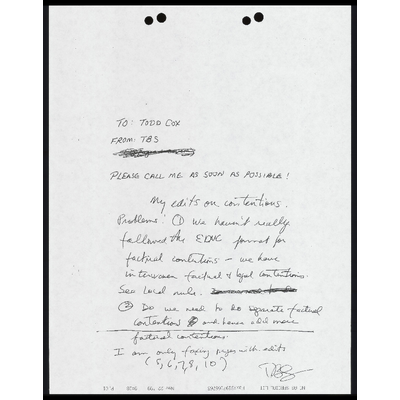 TO: TODD COX
FROM: TBS
PLEASE CALL ME AS SOON AS POSSIBLE!
My edits on contentions.
Problems: ① we haven't really
followed the EDNC format for
factual contentions — we have
interwoven factual & legal contentions.
See Local rule.
② Do we need to do separate factual
contentions and hence add more
factual contentions.
I am only faxing pages with edits
(5, 6, 7, 8, 10)